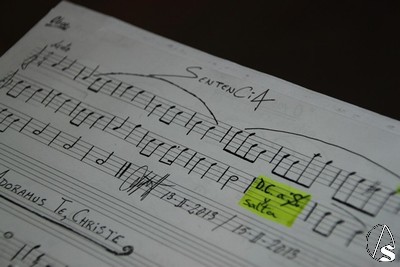 SENTENCIA
D.C. a 𝄋
y
salta
13-II-2013 / 15-II-2013
ADORAMUS TE, CHRISTE